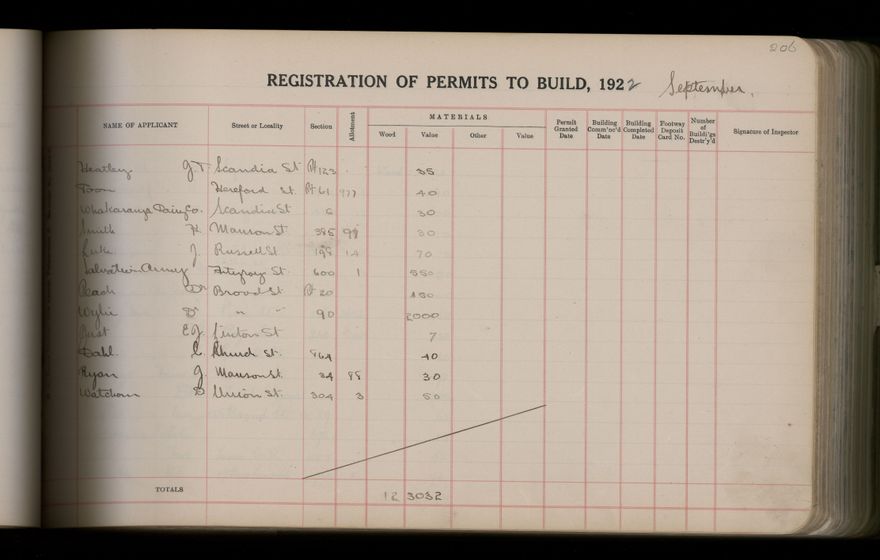 206
REGISTRATION OF PERMITS TO BUILD, 1922 September.
MATERIALS
NAME OF APPLICANT Street or Locality Section Allotment Wood Value Other Value Permit Granted Date Building Comm'nc'd Date Building Completed Date Footway Deposit Card No. Number of Buildi'gs Destr'y'd Signature of Inspector
Heatley J.T. Scandia St Pt 123 35
Hereford St. Pt 61 40
Whakaronga Dairy Co. Scandia St 6 30
Smith H Manson St 385 98 30
J Russell St 198 14 70
Salvation Army Fitzroy St. 600 1 550
Broad St Pt 20 150
Wylie D " " 90 2000
E.J. Linton St 7
Dahl. C Church St. 864 40
Ryan J. Manson St. 34 98 30
Watchorn D Union St. 304 3 50
TOTALS 12 3032